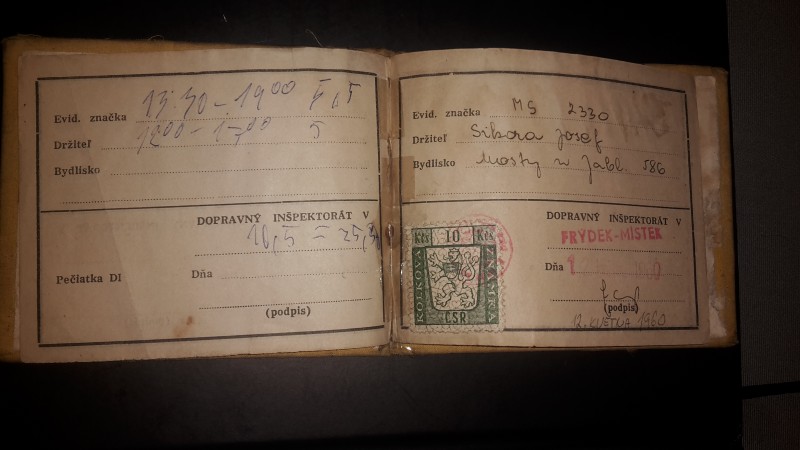 Evid. značka 13.30 – 19 00 5,5
Držiteľ 12 00 – 17 00 5
Bydlisko
DOPRAVNÝ INŠPEKTORÁT V
10,5 =
Dňa
Pečiatka DI
(podpis)
Evid. značka MS 2330
Držiteľ Sikora Josef
Bydlisko Mosty u Jabl. 586
DOPRAVNÝ INŠPEKTORÁT V
FRÝDEK-MÍSTEK
Kčs 10 Kčs
KOLKOVÁ
ZNÁMKA
ČSR
Dňa
(podpis)
12. KVĚTNA 1960